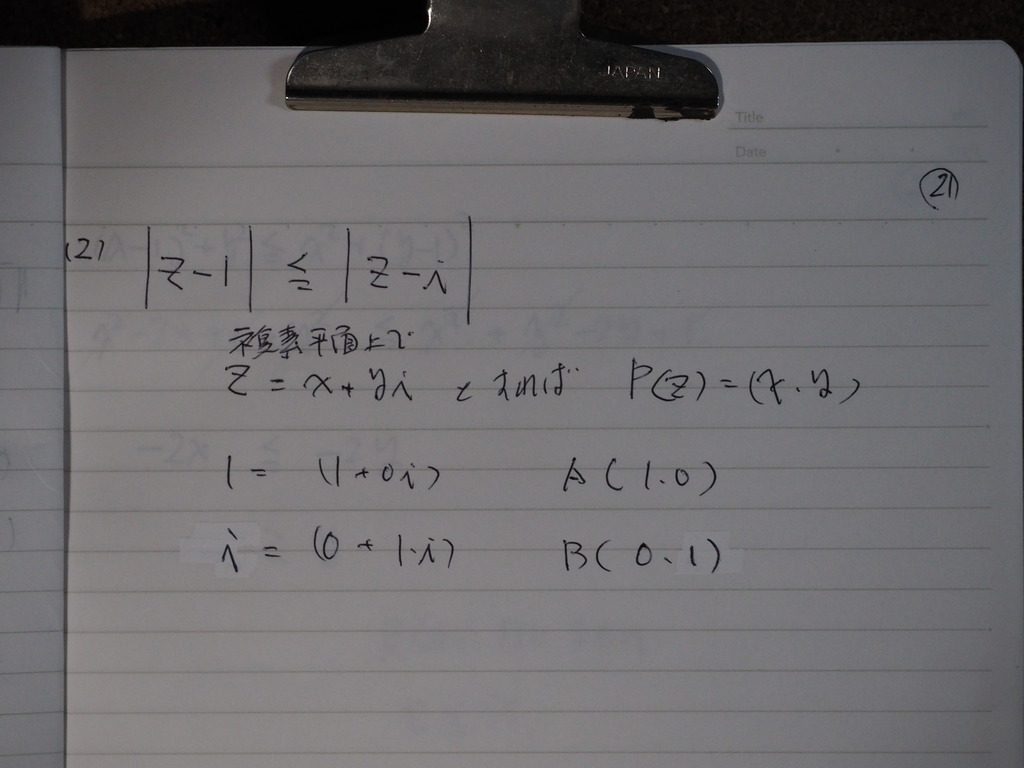 JAPAN
Title
Date
21
(2) |z-1| ≦ |z-i|
複素平面上で
z = x + yi とすれば P(z) = (x, y)
1 = (1+0i) A(1.0)
i = (0 + 1·i) B(0、1)